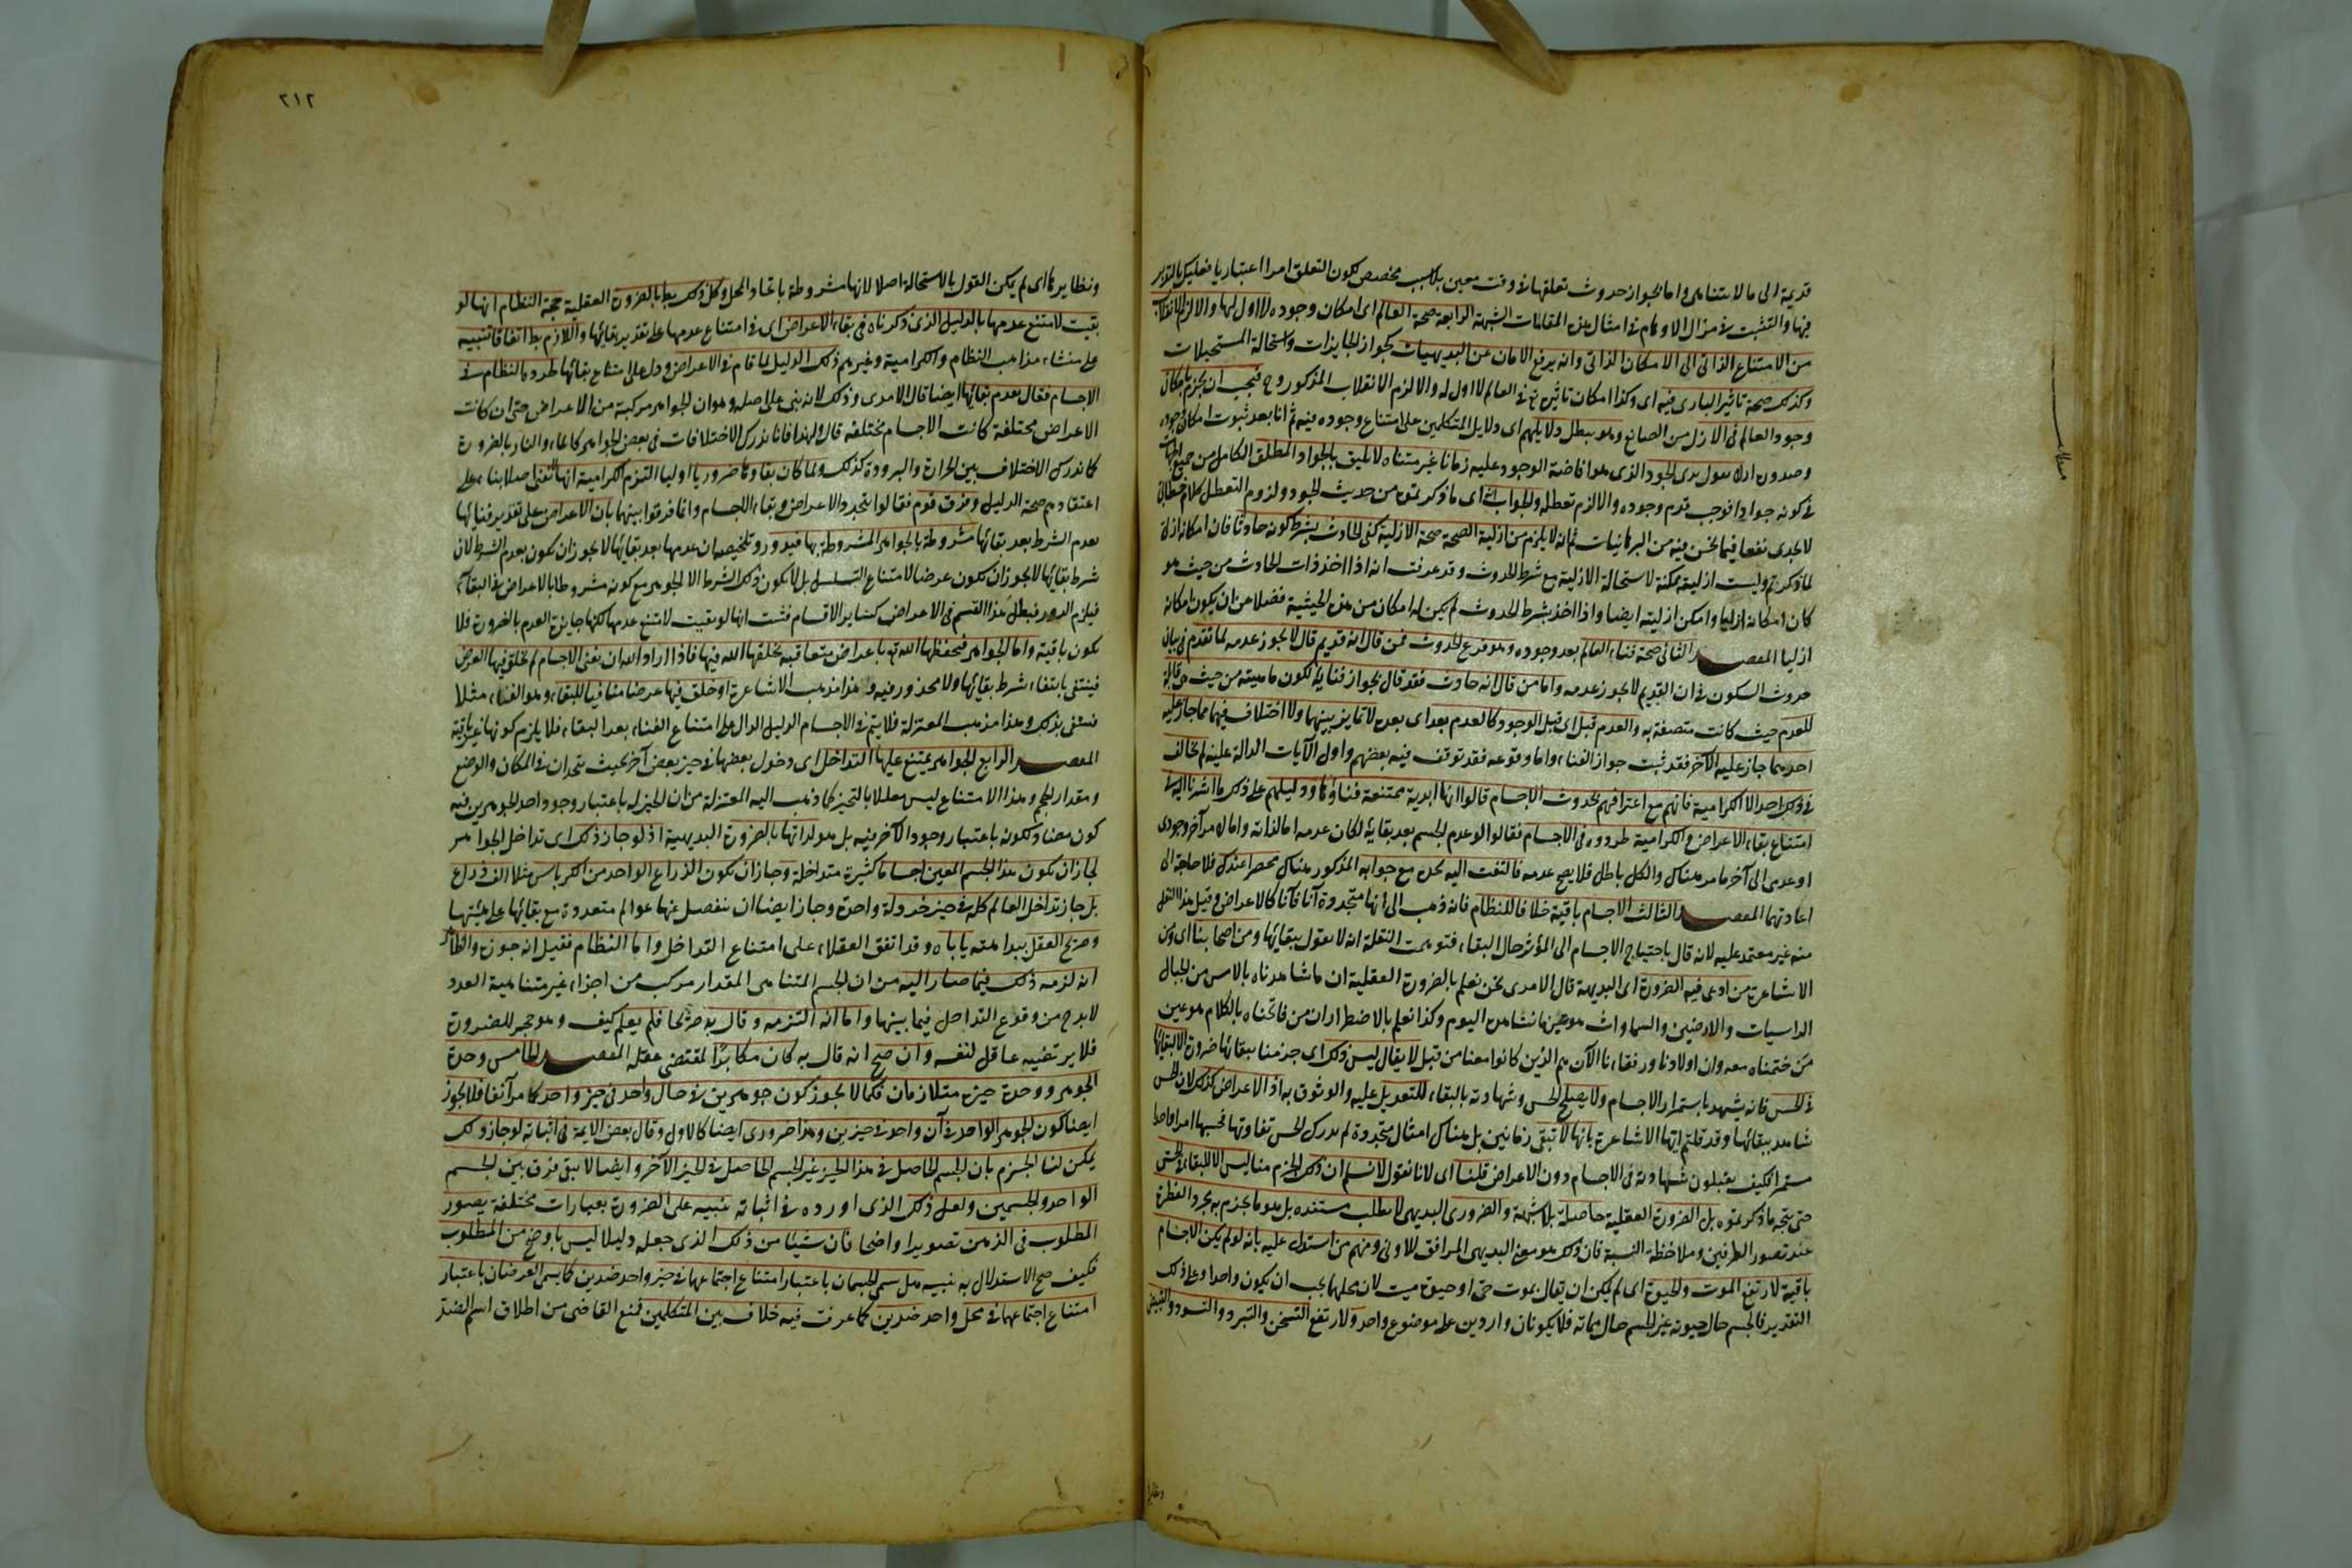 قديمة الى ما لا يتناهى واما لجواز حدوث تعلقها فى وقت معين بلا سبب مخصص لكون التعلق امرا اعتباريا فعليك بالتدبر
فيها والتثبت فى مزال الاوهام فى امثال هذه المقامات الشبهة الرابعة صحة العالم اى امكان وجوده لا اول لها والا لزم الانقلاب
من الامتناع الذاتى الى الامكان الذاتى وانه يرفع الامان عن البديهيات كجواز الجايزات واستحالة المستحيلات
وكذلك صحة تاثير البارى فيه اى وكذا امكان تاثيره تع فى العالم لا اول له والا لزم الانقلاب المذكور وح فيجب ان يجزم بامكان
وجود العالم فى الازل من الصانع وهو يبطل دلايلهم اى دلايل المتكلمين على امتناع وجوده فيه ثم انا بعد ثبوت امكان وجوده
وصدوره ازلا نقول ترك الجود الذى هو افاضة الوجود عليه زمانا غير متناه لا يليق بالجواد المطلق الكامل من جميع الجهات
فى كونه جوادا فوجب قدم وجوده والا لزم تعطله والجواب اى ما ذكرتموه من حديث الجود ولزوم التعطل كلام خطابى
لا يجدى نفعا فيما نحن فيه من البرهانيات ثم انه لا يلزم من ازلية الصحة صحة الازلية كفى الحادث بشرط كونه حادثا فان امكانه ازلى
لما ذكرتم وليست ازليته ممكنة لاستحالة الازلية مع شرط الحدوث وقد عرفت انه اذا اخذ ذات الحادث من حيث هو
كان امكانه ازليا وامكن ازليته ايضا واذا اخذ بشرط الحدوث لم يكن له امكان من هذه الحيثية فضلا من ان يكون امكانه
ازليا المقصد الثانى صحة فناء العالم بعد وجوده وهو فرع الحدوث فمن قال انه قديم قال لا يجوز عدمه لما تقدم فى بيان
حدوث السكون فى ان القديم لا يجوز عدمه واما من قال انه حادث فقد قال بجواز فنايه لكون ماهيته من حيث هى قابلة
للعدم حيث كانت متصفة به والعدم قبل اى قبل الوجود كالعدم بعد اى بعده لا تمايز بينهما ولا اختلاف فيهما مما جاز عليه
احدهما جاز عليه الآخر فقد ثبت جواز الفناء واما وقوعه فقد توقف فيه بعضهم واول الآيات الدالة عليه ولم يخالف
فى ذلك احد الا الكرامية فانهم مع اعترافهم بحدوث الاجسام قالوا انها ابدية ممتنعة فناؤها ودليلهم على ذلك ما اشرنا اليه فى
امتناع بقاء الاعراض والكرامية طردوه فى الاجسام فقالوا لو عدم الجسم بعد بقايه لكان عدمه اما لذاته واما لامر آخر وجودى
او عدمى الى آخر ما مر هناك والكل باطل فلا يصح عدمه فالتفت اليه نحوه مع جوابه المذكور هناك محضرا عندك فلا حاجة الى
اعادتهما المقصد الثالث الاجسام باقية خلافا للنظام فانه ذهب الى أنها متجددة آنا فآنا كالاعراض وقيل هذا النقل
منه غير معتمد عليه لانه قال باحتياج الاجسام الى المؤثر حال البقاء فتوهمت النقلة انه لا يقول ببقائها ومن اصحابنا اى من
الاشاعرة من ادعى فيه الضرورة اى البديهة قال الآمدى نحن نعلم بالضرورة العقلية ان ما شاهدناه بالامس من الجبال
الراسيات والارضين والسماوات هو عين ما نشاهده اليوم وكذا نعلم بالاضطرار ان من فاتحناه بالكلام هو عين
من ختمناه معه وان اولادنا ورفقاءنا الآن هم الذين كانوا معنا من قبل لا يقال ليس ذلك اى جزمنا ببقائها ضرورة الا لبقائها
فى الحس فانه يشهد باستمرار الاجسام ولا يصلح الحس وشهادته بالبقاء للتعويل عليه والوثوق به اذ الاعراض كذلك لان الحس
شاهد ببقائها وقد قلتم ايها الاشاعرة بانها لا تبقى زمانين بل هناك امثال متجددة لم يدرك الحس تفاوتها فحسبها امرا واحدا
مستمرا فكيف يقبلون شهادته فى الاجسام دون الاعراض قلنا اى لانا نقول لا نسلم ان ذلك الجزم منا ليس الا للبقاء فى الحس
حتى يتجه ما ذكرتموه بل الضرورة العقلية حاصلة بلا شبهة والضرورى البديهى لا يطلب مستنده بل هو ما يجزم به بمجرد الفطرة
عند تصور الطرفين وملاحظة النسبة فان ذلك هو معنى البديهى المرافق للاولى ومنهم من استدل عليه بانه لو لم يكن الاجسام
باقية لارتفع الموت والحيوة اى لم يمكن ان يقال بموت حى او حيوة ميت لان محلهما يجب ان يكون واحدا وعلى ذلك
التقدير فالجسم حال حيوته غير الجسم حال مماته فلا يكونان واردين على موضوع واحد ولارتفع التسخن والتبرد والتسود والتبيض
ونظاير
٢١٢
ونظايرها اى لم يكن القول بالاستحالة اصلا لانها مشروطة باتحاد المحل وكل ذلك بط بالضرورة العقلية حجة النظام انها لو
بقيت لامتنع عدمها بالدليل الذى ذكرناه فى بقاء الاعراض اى فى امتناع عدمها على تقدير بقائها واللازم بط اتفاقا تنبيه
على منشاء مذاهب النظام والكرامية وغيرهم ذلك الدليل لما قام فى الاعراض ودل على امتناع بقائها طرده النظام فى
الاجسام فقال بعدم بقائها ايضا قال الآمدى وذلك لانه بنى على اصله وهو ان الجواهر مركبة من الاعراض حتى ان كانت
الاعراض مختلفة كانت الاجسام مختلفة قال ولهذا فانا ندرك الاختلافات فى بعض الجواهر كالماء والنار بالضرورة
كما ندرك الاختلاف بين الحرارة والبرودة كذلك ولما كان بقاؤها ضروريا اوليا التزم الكرامية انها لا تفنى اصلا بناء على
اعتقادهم صحة الدليل وفرق قوم فقالوا بتجدد الاعراض وبقاء الاجسام وانما فرقوا بينهما بان الاعراض على تقدير فنايها
بعدم الشرط بعد بقائها مشروطة بالجواهر المشروطة بها فيدور وتلخيصه ان عدمها بعد بقائها لا يجوز ان يكون بعدم الشرط لان
شرط بقائها لا يجوز ان يكون عرضا لامتناع التسلسل بل لا يكون ذلك الشرط الا الجوهر مع كونه مشروطا بالاعراض فى البقاء
فيلزم الدور فبطل هذا القسم فى الاعراض كساير الاقسام فثبت انها لو بقيت لامتنع عدمها لكنها جايزة العدم بالضرورة فلا
يكون باقية واما الجواهر فيحفظها الله تع باعراض متعاقبة يخلقها الله فيها فاذا اراد الله ان يفنى الاجسام لم يخلق فيها العرض
فينتفى بانتفاء شرط بقائها ولا محذور فيه وهذا مذهب الاشاعرة او خلق فيها عرضا منافيا للبقاء وهو الفناء مثلا
فينتفى بذلك وهذا مذهب المعتزلة فلا يتم فى الاجسام الدليل الدال على امتناع الفناء بعد البقاء فلا يلزم كونها غير باقية
المقصد الرابع الجواهر يمتنع عليها التداخل اى دخول بعضها فى حيز بعض آخر بحيث يتحدان فى المكان والوضع
ومقدار الحجم وهذا الامتناع ليس معللا بالتحيز كما ذهب اليه المعتزلة من ان الحيز له باعتبار وجود احد الجوهرين فيه
كون مضاد لكونه باعتبار وجود الآخر فيه بل هو لذاتها بالضرورة البديهية اذ لو جاز ذلك اى تداخل الجواهر
لجاز ان يكون هذا الجسم المعين اجساما كثيرة متداخلة وجاز ان يكون الذراع الواحد من الكرباس مثلا الف ذراع
بل جاز تداخل العالم كله فى حيز خردلة واحدة وجاز ايضا ان ينفصل عنها عوالم متعددة مع بقائها على هيئتها
وصريح العقل ببداهته ياباه وقد اتفق العقلاء على امتناع التداخل واما النظام فقيل انه جوزه والظاهر
انه لزمه ذلك فيما صار اليه من ان الجسم المتناهى المقدار مركب من اجزاء غير متناهية العدد
لا بد ح من وقوع التداخل فيما بينها واما انه التزمه وقال به صريحا فلم يعلم كيف وهو جحد للضرورة
فلا يرتضيه عاقل لنفسه وان صح انه قال به كان مكابرا لمقتضى عقله المقصد الخامس وحدة
الجوهر ووحدة حيزه متلازمان فكما لا يجوز كون جوهرين فى حال واحد فى حيز واحد كما مر آنفا فلا يجوز
ايضا كون الجوهر الواحد فى آن واحد فى حيزين وهذا ضرورى ايضا كالاول وقال بعض الايمة فى اثباته لو جاز ذلك لم
يمكن لنا الجزم بان الجسم الحاصل فى هذا الحيز غير الجسم الحاصل فى الحيز الآخر وايضا لا يبقى فرق بين الجسم
الواحد والجسمين ولعل ذلك الذى اورده فى اثباته تنبيه على الضرورة بعبارات مختلفة يصور
المطلوب فى الذهن تصويرا واضحا فان شيئا من ذلك الذى جعله دليلا ليس باوضح من المطلوب
فكيف صح الاستدلال به تنبيه هل سمى الجسمان باعتبار امتناع اجتماعهما فى حيز واحد ضدين كما يسمى العرضان باعتبار
امتناع اجتماعهما فى محل واحد ضدين كما عرفت فيه خلاف بين المتكلمين فمنع القاضى من اطلاق اسم الضد